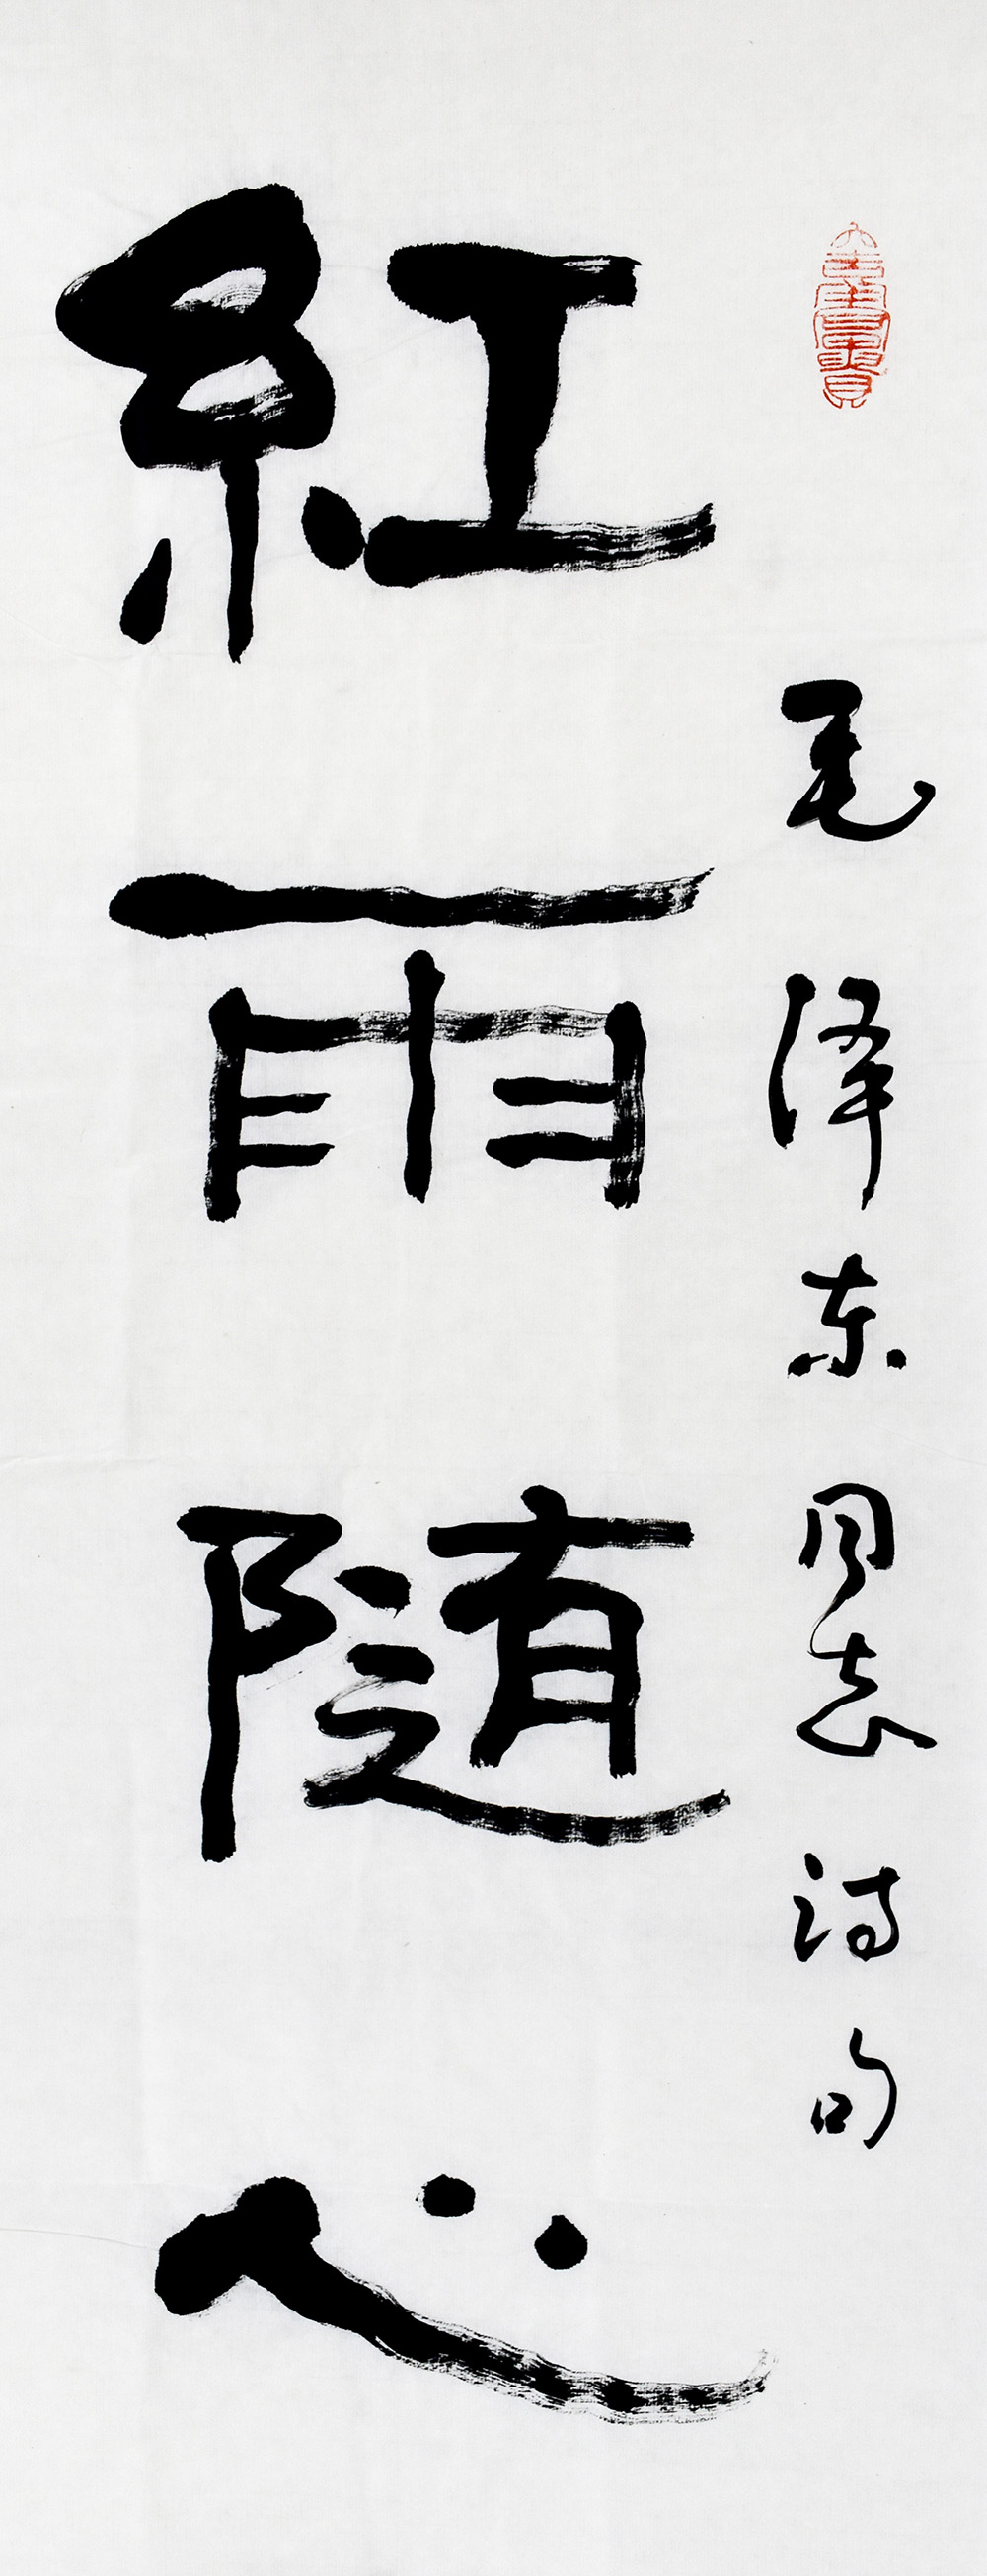 毛泽东同志诗句
紅雨随心